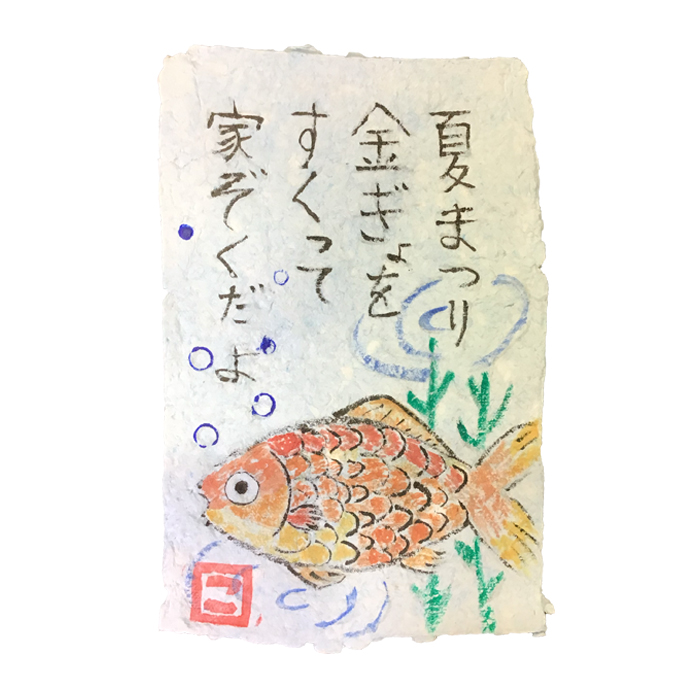 夏まつり
金ぎょを
すくって
家ぞくだよ